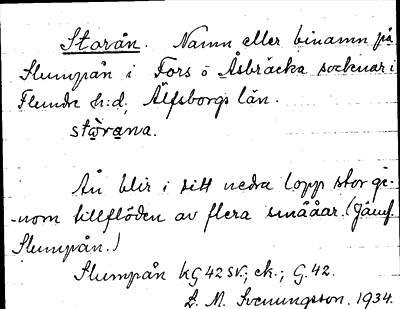 Storån. Namn eller binamn på
Slumpån i Fors o Åsbräcka socknar i
Flundre h:d, Älfsborgs län.
stὼrąna.
Ån blir i sitt nedra lopp stor ge-
nom tillflöden av flera småår. (Jämf.
Slumpån.)
Slumpån kG 42 SV.; ek.; G. 42.
D. M. Svenungsson. 1934.